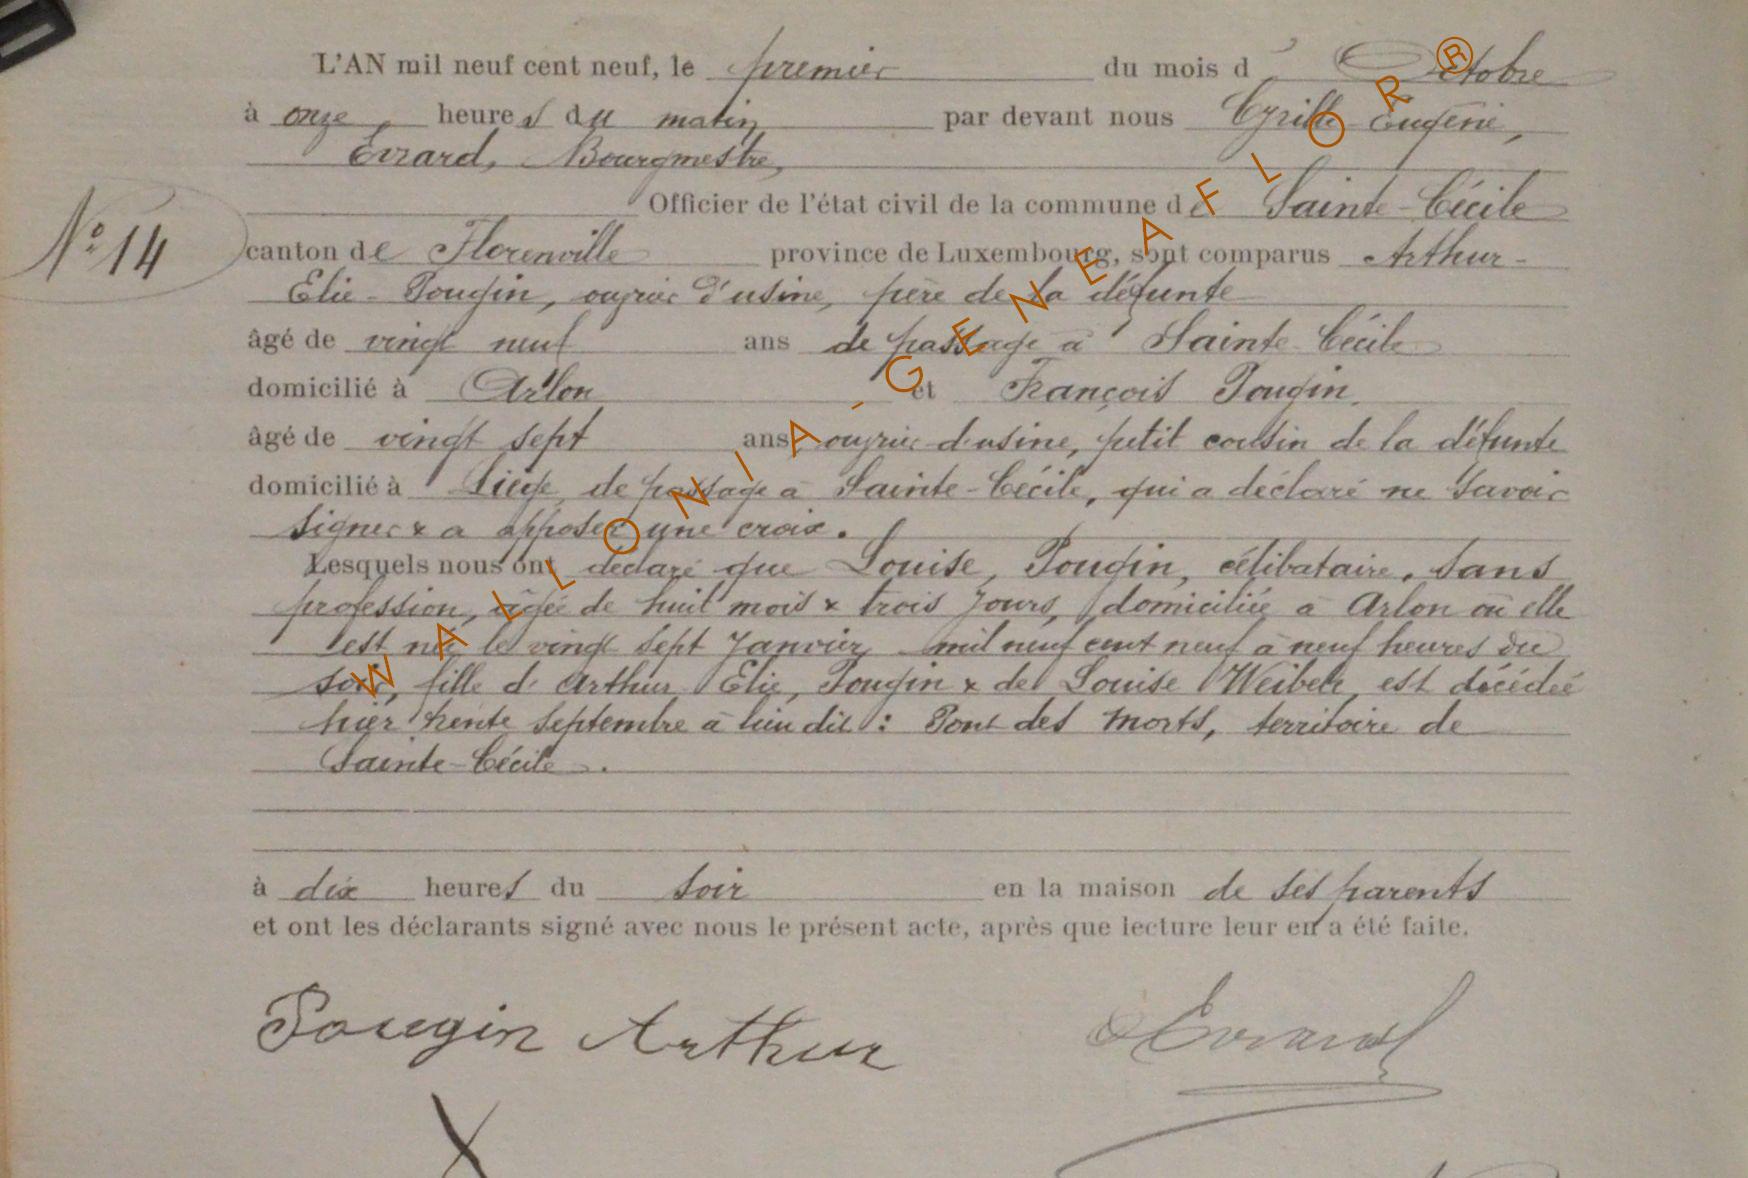 L'AN mil neuf cent neuf, le premier du mois d'Octobre
à onze, heures du matin par devant nous Cyrille Eugène,
Evrard, Bourgmestre,
Officier de l'état civil de la commune de Sainte-Cécile
N° 14
canton de Florenville province de Luxembourg, sont comparus Arthur-
Elie-Pougin, ouvrier d'usine, père de la défunte
âgé de vingt neuf ans de passage à Sainte-Cécile
domicilié à Arlon et François Pougin,
âgé de vingt sept ans, ouvrier d'usine, petit cousin de la défunte
domicilié à Liège, de passage à Sainte-Cécile, qui a déclaré ne savoir
signer & a apposer une croix.
Lesquels nous ont déclaré que Louise, Pougin, célibataire, sans
profession, âgée de huit mois & trois jours, domiciliée à Arlon où elle
est née le vingt sept Janvier mil neuf cent neuf à neuf heures du
soir, fille d'Arthur Elie, Pougin & de Louise Weiber, est décédée
hier trente septembre à lieu dit : Pont des Morts, territoire de
Sainte-Cécile.
à dix heures du soir en la maison de ses parents
et ont les déclarants signé avec nous le présent acte, après que lecture leur en a été faite.
Pougin Arthur
Evrard
X
WALLONIA-GENEAFLOR®